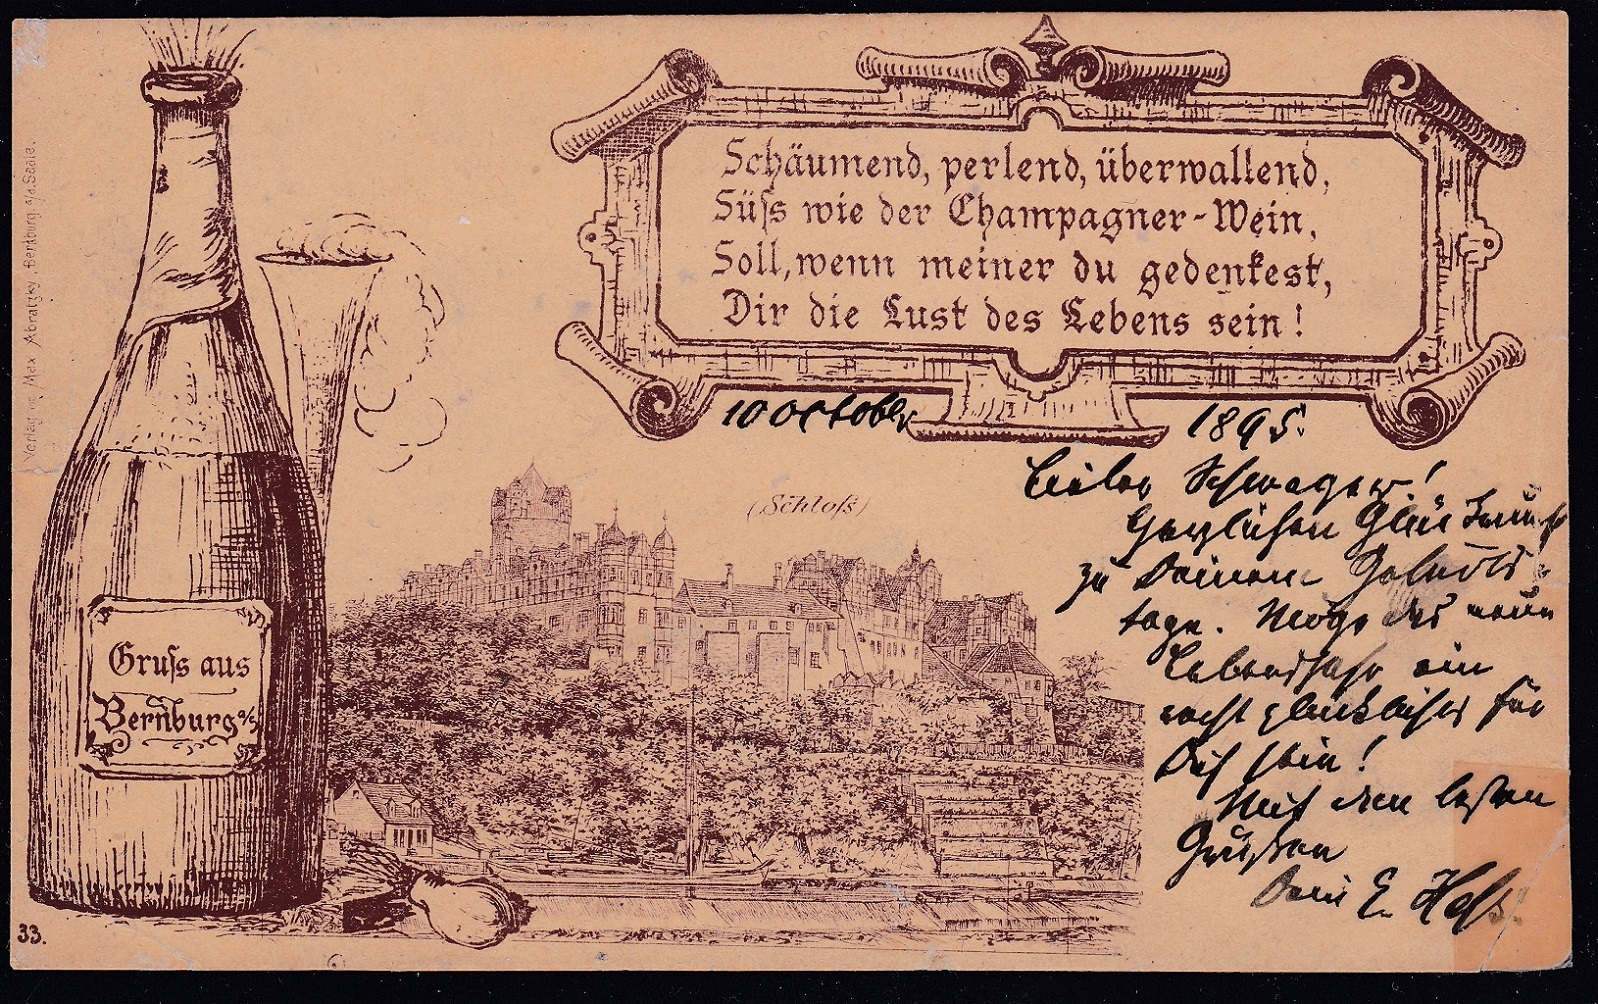 Schäumend, perlend, überwallend,
Süſs wie der Champagner-Wein,
Soll, wenn meiner du gedenkest,
Dir die Lust des Lebens sein!
10 October 1895.
Lieber Schwager!
Herzlichen Glückwunsch
zu Deinem Geburts-
tage. Möge das neue
Lebensjahr ein
recht glückliches für
Dich sein!
Mit den besten
Grüßen
Dein E.
(Schloſs)
Gruſs aus
Bernburg a/S
Verlag von Max Abratzky, Bernburg a/d. Saale.
33.